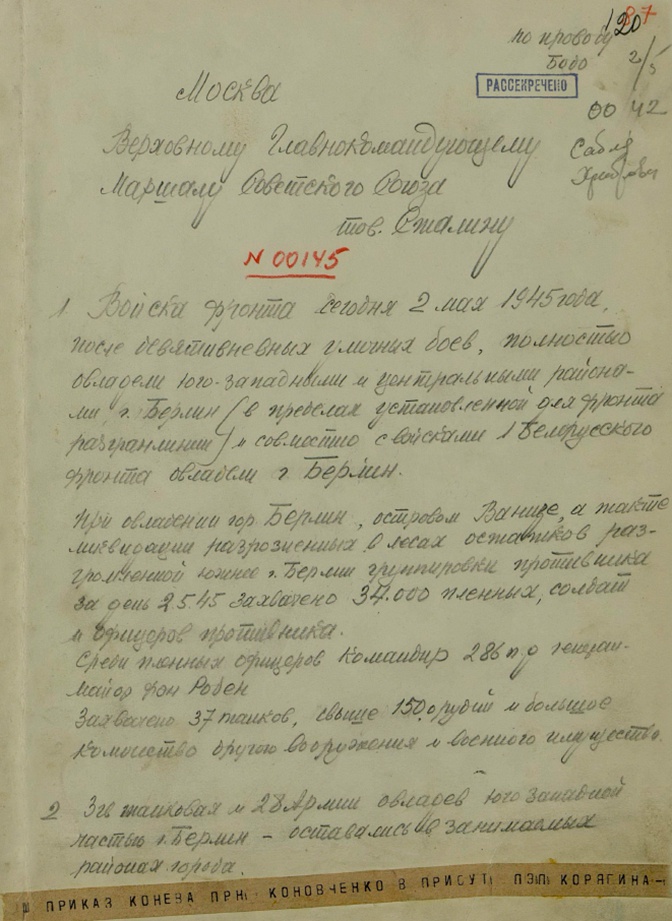 87
120
по проводу
Бодо 2/5
РАССЕКРЕЧЕНО
00 42
Москва
Верховному Главнокомандующему
Маршалу Советского Союза
тов. Сталину
N 00145
1 Войска фронта сегодня 2 мая 1945 года,
после девятивневных уличных боев, полностью
овладели юго-западными и центральными района-
ми г. Берлин (в пределах установленной для фронта
разгранлинии) и совместно с войсками 1 Белорусского
фронта овладели г Берлин.
При овладении гор. Берлин, островом Ванзее, а также
ликвидации разрозненных в лесах остатков раз-
громленной южнее г. Берлин группировки противника
за день 2.5.45 захвачено 34.000 пленных, солдат
и офицеров противника.
Среди пленных офицеров командир 286 п.д генерал-
майор фон Робен
Захвачено 37 танков, свыше 150 орудий и большое
количество другого вооружения и военного имущества.
2 3гв танковая и 28 Армии овладев юго западной
частью г. Берлин - оставались в занимаемых
районах города.
ПРИКАЗ КОНЕВА ПРН КОНОВЧЕНКО В ПРИСУТ ПЭП КОРЯГИНА—